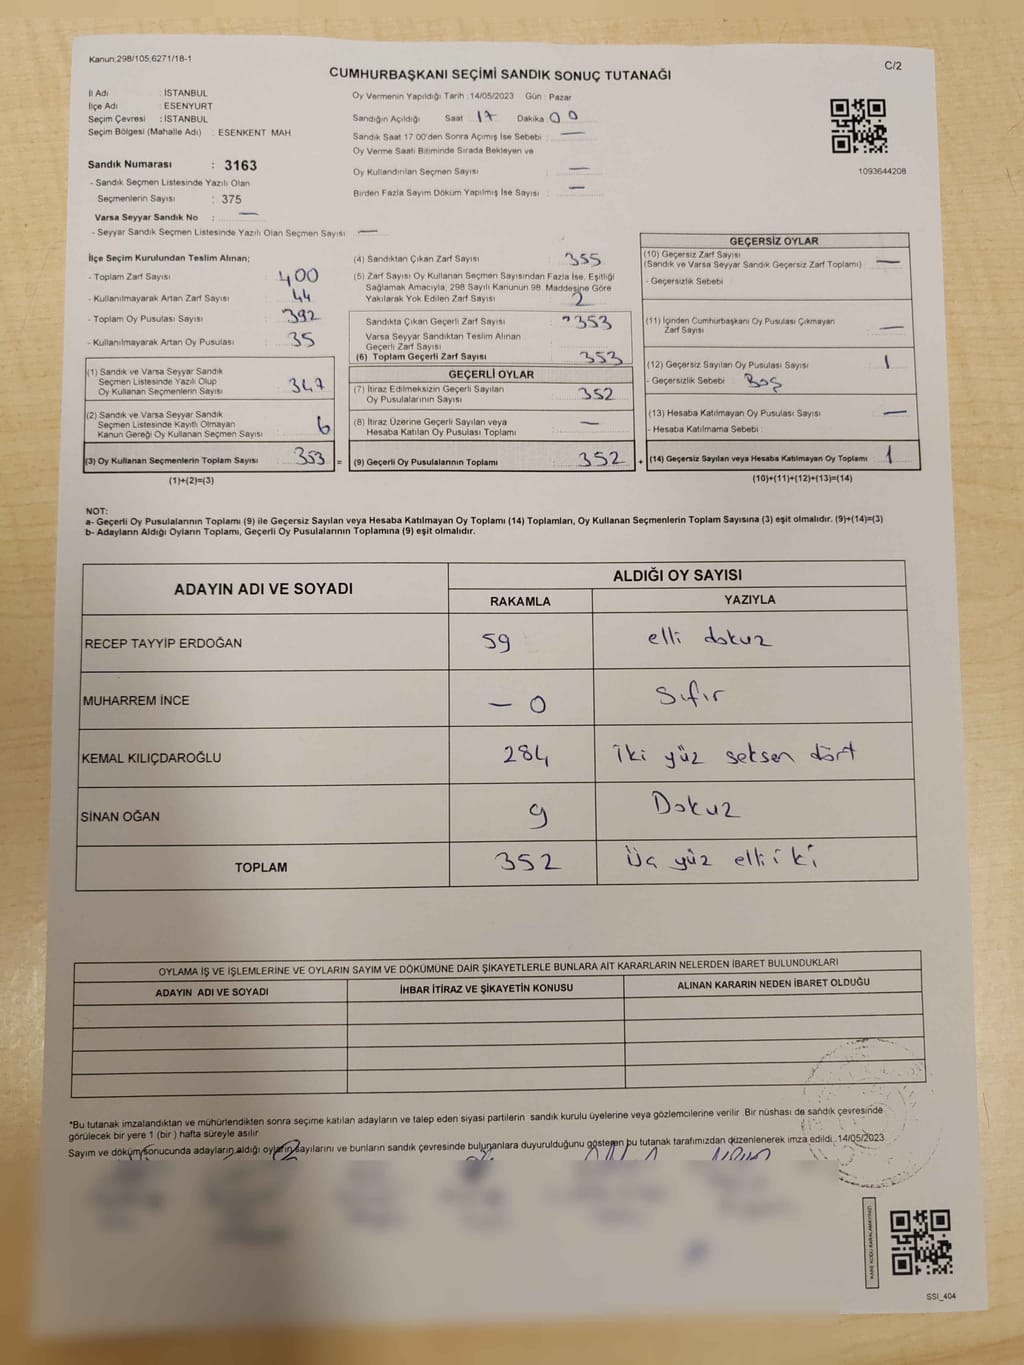 Kanun;298/105;6271/18-1
C/2
CUMHURBAŞKANI SEÇİMİ SANDIK SONUÇ TUTANAĞI
İl Adı : İSTANBUL
İlçe Adı : ESENYURT
Seçim Çevresi : İSTANBUL
Seçim Bölgesi (Mahalle Adı) : ESENKENT MAH
Oy Vermenin Yapıldığı Tarih :14/05/2023 Gün : Pazar
Sandığın Açıldığı Saat 17 Dakika 00
Sandık Saat 17:00'den Sonra Açımış İse Sebebi : —
Oy Verme Saati Bitiminde Sırada Bekleyen ve
Oy Kullandırılan Seçmen Sayısı : —
Birden Fazla Sayım Döküm Yapılmış İse Sayısı : —
1093644208
Sandık Numarası : 3163
- Sandık Seçmen Listesinde Yazılı Olan
Seçmenlerin Sayısı : 375
Varsa Seyyar Sandık No : —
- Seyyar Sandık Seçmen Listesinde Yazılı Olan Seçmen Sayısı : —
İlçe Seçim Kurulundan Teslim Alınan;
- Toplam Zarf Sayısı 400
- Kullanılmayarak Artan Zarf Sayısı : 44
- Toplam Oy Pusulası Sayısı : 392
- Kullanılmayarak Artan Oy Pusulası : 35
(1) Sandık ve Varsa Seyyar Sandık
Seçmen Listesinde Yazılı Olup
Oy Kullanan Seçmenlerin Sayısı : 347
(2) Sandık ve Varsa Seyyar Sandık
Seçmen Listesinde Kayıtlı Olmayan
Kanun Gereği Oy Kullanan Seçmen Sayısı : 6
(3) Oy Kullanan Seçmenlerin Toplam Sayısı : 353
(1)+(2)=(3)
(4) Sandıktan Çıkan Zarf Sayısı : 355
(5) Zarf Sayısı Oy Kullanan Seçmen Sayısından Fazla İse, Eşitliği
Sağlamak Amacıyla, 298 Sayılı Kanunun 98. Maddesine Göre
Yakılarak Yok Edilen Zarf Sayısı : 2
Sandıkta Çıkan Geçerli Zarf Sayısı : 353
Varsa Seyyar Sandıktan Teslim Alınan
Geçerli Zarf Sayısı
(6) Toplam Geçerli Zarf Sayısı : 353
GEÇERLİ OYLAR
(7) İtiraz Edilmeksizin Geçerli Sayılan
Oy Pusulalarının Sayısı : 352
(8) İtiraz Üzerine Geçerli Sayılan veya
Hesaba Katılan Oy Pusulası Toplamı : —
= (9) Geçerli Oy Pusulalarının Toplamı : 352 +
GEÇERSİZ OYLAR
(10) Geçersiz Zarf Sayısı
(Sandık ve Varsa Seyyar Sandık Geçersiz Zarf Toplamı) : —
- Geçersizlik Sebebi :
(11) İçinden Cumhurbaşkanı Oy Pusulası Çıkmayan
Zarf Sayısı : —
(12) Geçersiz Sayılan Oy Pusulası Sayısı : 1
- Geçersizlik Sebebi : Boş
(13) Hesaba Katılmayan Oy Pusulası Sayısı : —
- Hesaba Katılmama Sebebi :
(14) Geçersiz Sayılan veya Hesaba Katılmayan Oy Toplamı : 1
(10)+(11)+(12)+(13)=(14)
NOT:
a- Geçerli Oy Pusulalarının Toplamı (9) ile Geçersiz Sayılan veya Hesaba Katılmayan Oy Toplamı (14) Toplamları, Oy Kullanan Seçmenlerin Toplam Sayısına (3) eşit olmalıdır. (9)+(14)=(3)
b- Adayların Aldığı Oyların Toplamı, Geçerli Oy Pusulalarının Toplamına (9) eşit olmalıdır.
ADAYIN ADI VE SOYADI ALDIĞI OY SAYISI
RAKAMLA YAZIYLA
RECEP TAYYİP ERDOĞAN 59 elli dokuz
MUHARREM İNCE — 0 Sıfır
KEMAL KILIÇDAROĞLU 284 İki yüz seksen dört
SİNAN OĞAN 9 Dokuz
TOPLAM 352 Üç yüz elli iki
OYLAMA İŞ VE İŞLEMLERİNE VE OYLARIN SAYIM VE DÖKÜMÜNE DAİR ŞİKAYETLERLE BUNLARA AİT KARARLARIN NELERDEN İBARET BULUNDUKLARI
ADAYIN ADI VE SOYADI İHBAR İTİRAZ VE ŞİKAYETİN KONUSU ALINAN KARARIN NEDEN İBARET OLDUĞU
*Bu tutanak imzalandıktan ve mühürlendikten sonra seçime katılan adayların ve talep eden siyasi partilerin sandık kurulu üyelerine veya gözlemcilerine verilir .Bir nüshası de sandık çevresinde
görülecek bir yere 1 (bir ) hafta süreyle asılır.
Sayım ve döküm sonucunda adayların aldığı oyların sayılarını ve bunların sandık çevresinde bulunanlara duyurulduğunu gösteren bu tutanak tarafımızdan düzenlenerek imza edildi. 14/05/2023
KARE KODU KARALAMAYINIZ!
SSI_404